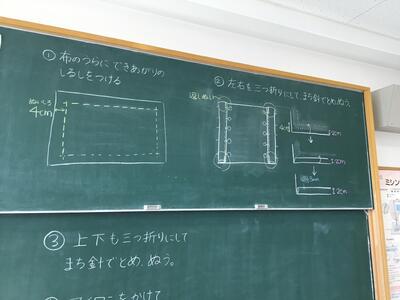 ① 布のうらに できあがりの
しるしをつける
ぬいしろ
4cm
② 左右を三つ折りにして、まち針でとめ、ぬう。
返しぬい
4cm
2cm
2cm
2cm
③ 上下も三つ折りにして
まち針でとめ、ぬう。
アイロンをかけて
ミシン